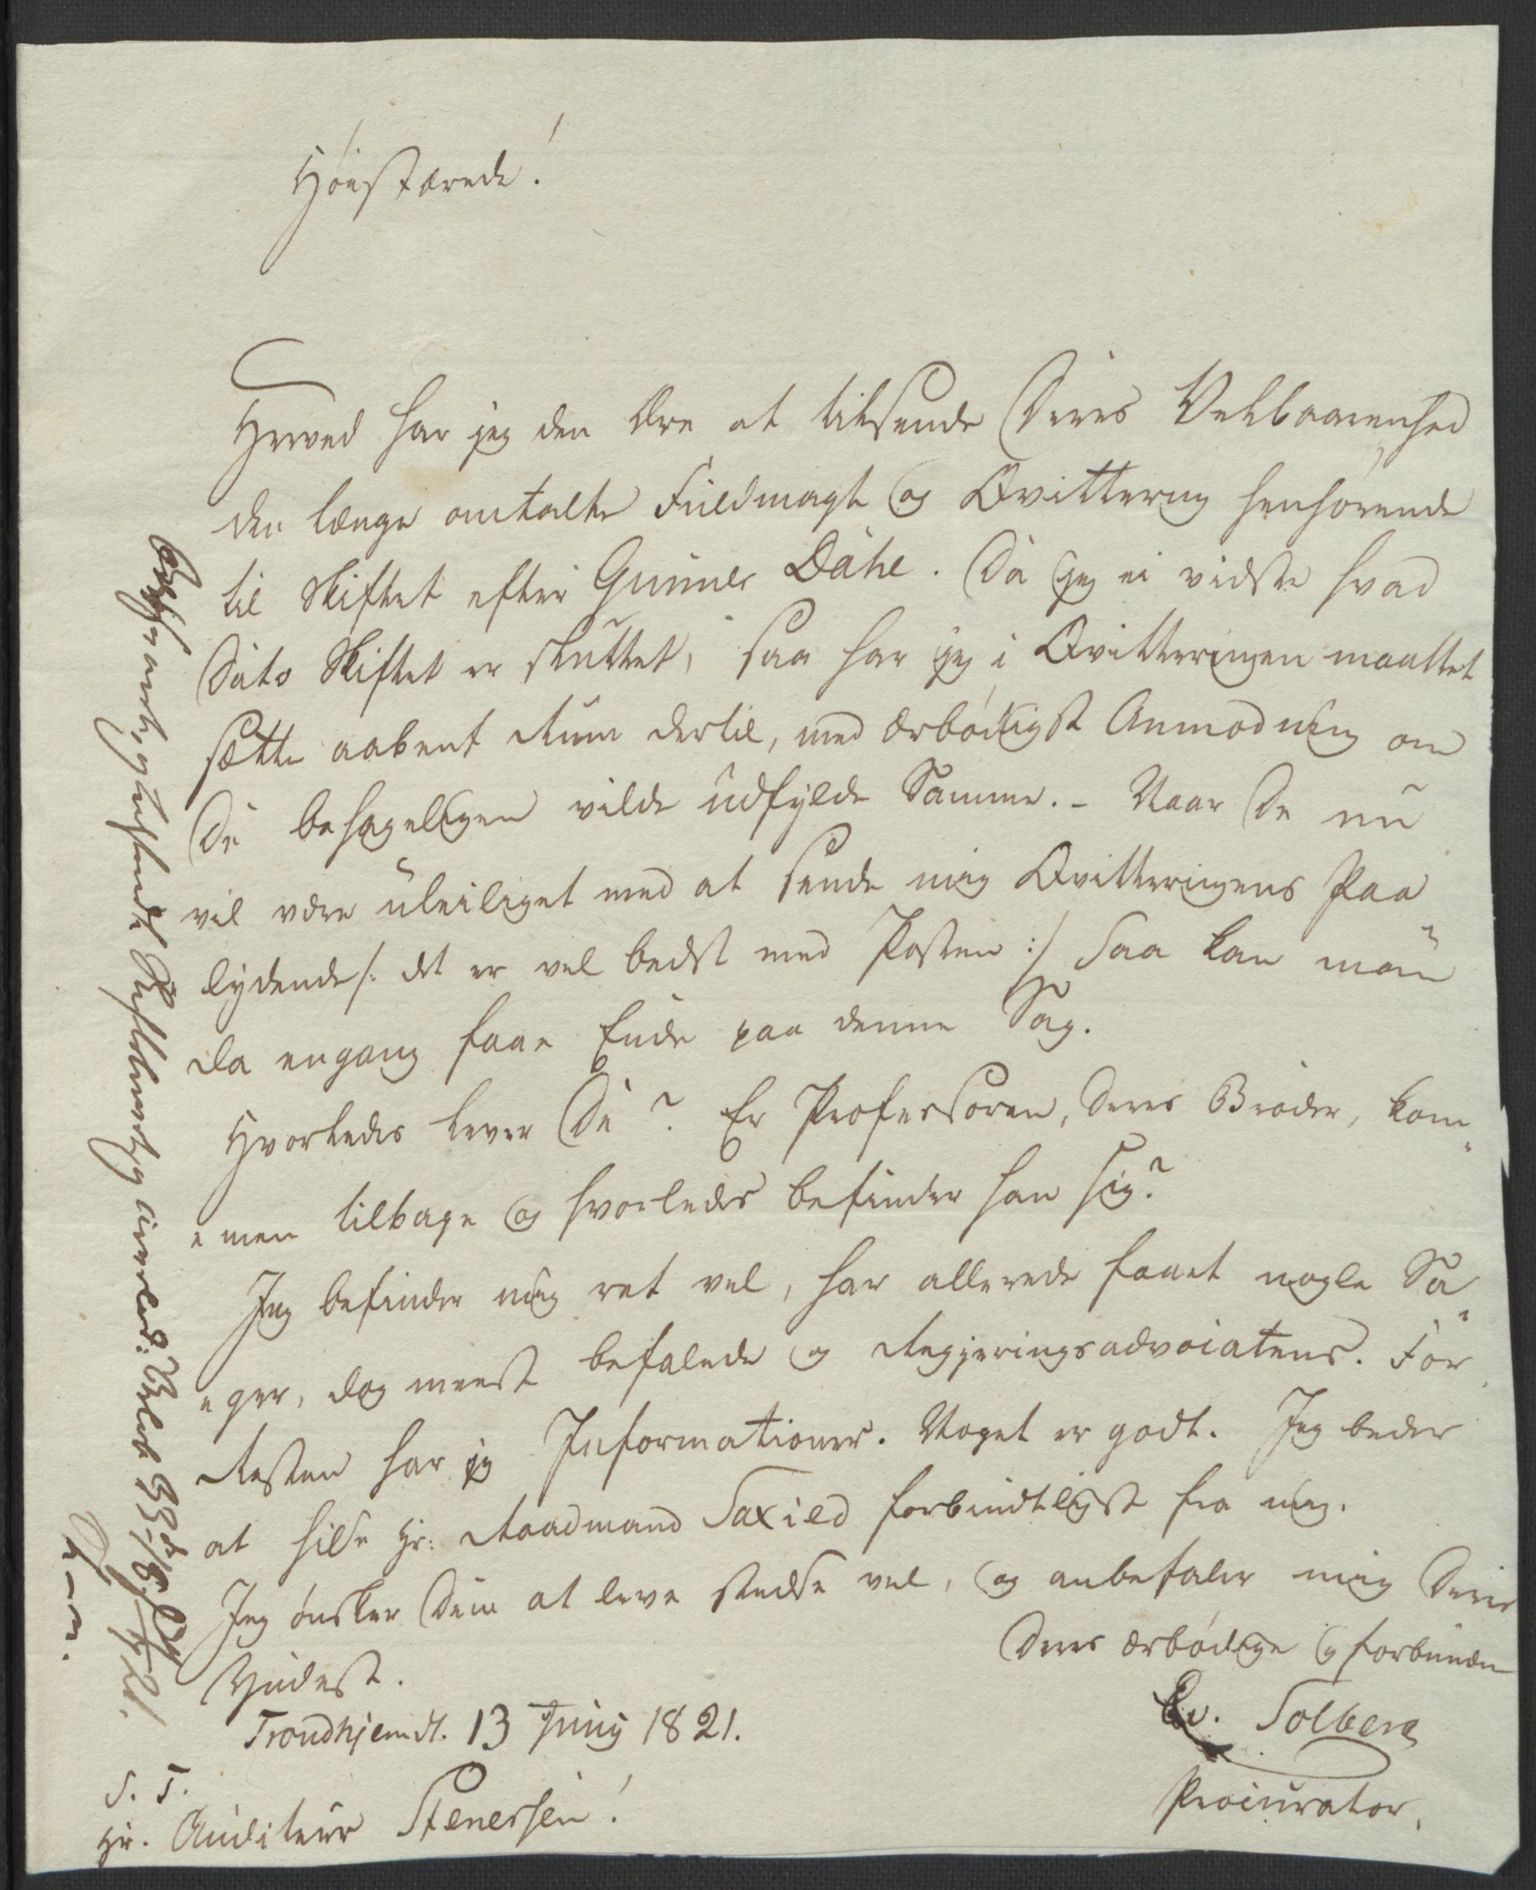 Høistærede!
Herved har jeg den Ære at tilsende Deres Velbaarenhed
den længe omtalte Fuldmagt og Qvittering henhørende
til Skiftet efter Gunner Dahl. Da jeg ei vidste hvad
Dato Skiftet er sluttet, saa har jeg i Qvitteringen maattet
sætte aabent Rum dertil, med ærbødigst Anmodning om
De behageligen vilde udfylde Samme. - Naar De nu
vil være uleiliget med at sende mig Qvitteringens Paa
lydende /: det er vel bedst med Posten :/ saa kan man
da engang faae Ende paa denne Sag.
Hvorledes lever De? Er Professoren, Deres Broder, kom„
„men tilbage og hvorledes befinder han sig?
Jeg befinder mig ret vel, har allerede faaet nogle Sa„
„ger, dog meest befalede og Regjeringsadvocatens. For
Resten har jeg Informationer. Noget er godt. Jeg beder
at hilse Hr: Raadmand Saxild forbindtligst fra mig.
Jeg ønsker Dem at leve stedse vel, og anbefaler mig Deres
Yndest.
Deres ærbødige og forbundne
Trondhjem d. 13 Juny 1821.
Ev. Solberg
Procurator.
S. T.
Hr. Auditeur Stenersen!